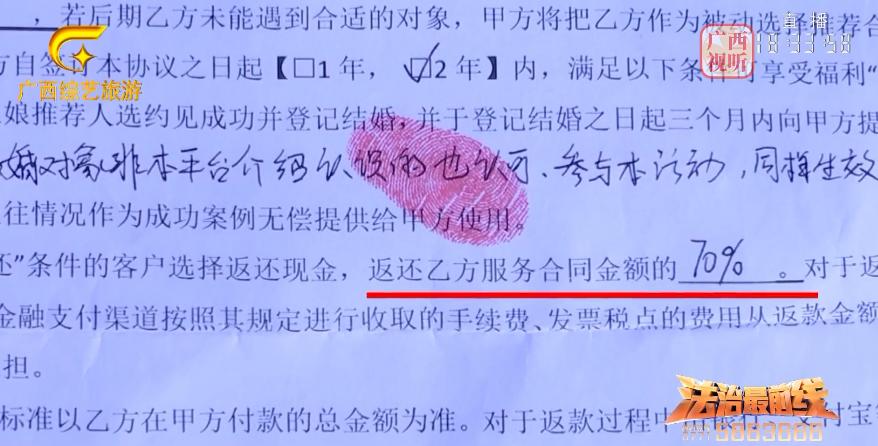 ，若后期乙方未能遇到合适的对象，甲方将把乙方作为被动选择推荐合
方自签订本协议之日起【□1 年，☑2 年】内，满足以下条件可享受福利“
娘推荐人选约见成功并登记结婚，并于登记结婚之日起三个月内向甲方提
婚对象非本平台介绍认识的也认可、参与本活动，同样生效
往情况作为成功案例无偿提供给甲方使用。
还”条件的客户选择返还现金，返还乙方服务合同金额的 70% 。对于返
金融支付渠道按照其规定进行收取的手续费、发票税点的费用从返款金额
担。
标准以乙方在甲方付款的总金额为准。对于返款过程中
付宝
广西综艺旅游
直播
广西视听
18:33:58
法治最前线